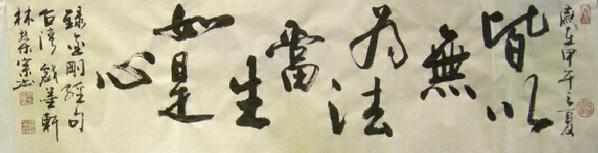 歲在甲午之夏
皆以
無
為法
當
生
如是
心
錄金剛經句
台灣戲墨軒
林榮宗